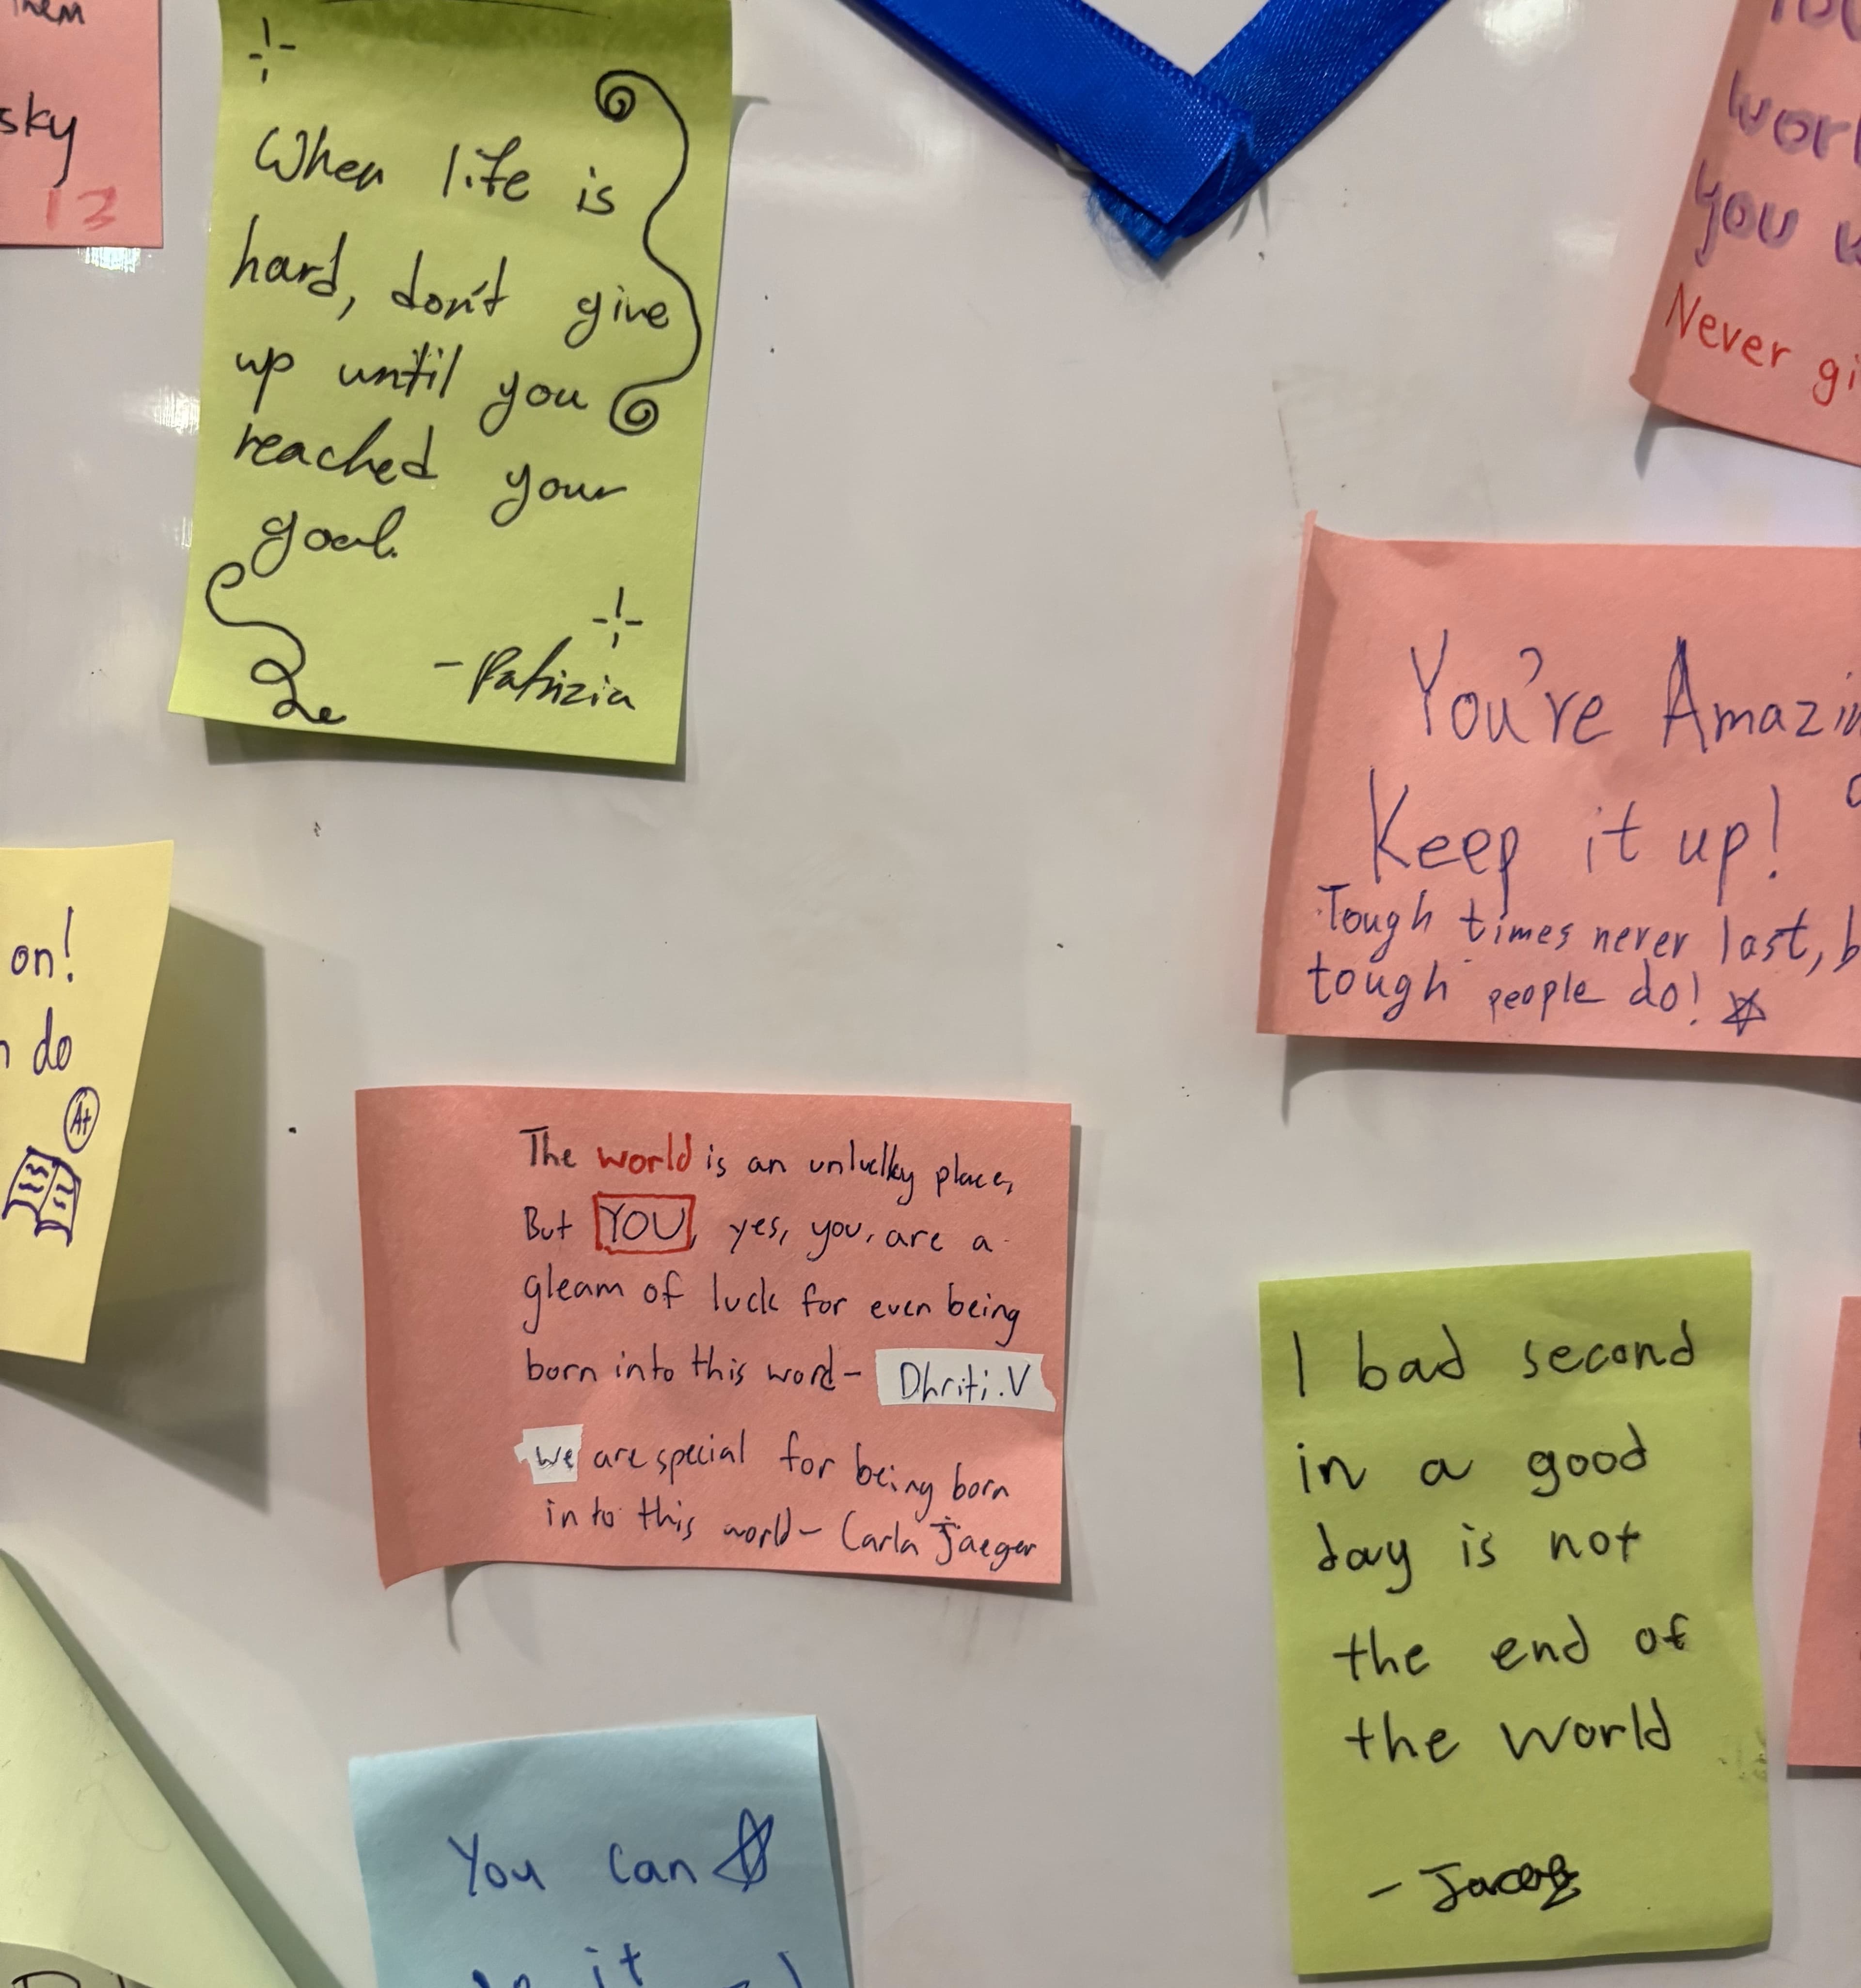 sky
13
When life is
hard, don't give
up until you
reached your
goal.
-Patrizia
you
Never
You're
Keep it up!
Tough times never last,
tough people do!
on!
do
A+
The world is an unlucky place,
But YOU, yes, you, are a
gleam of luck for even being
born into this word- Dhriti.V
We are special for being born
into this world- Carla Jaeger
1 bad second
in a good
day is not
the end of
the world
- Jacob
You can
it